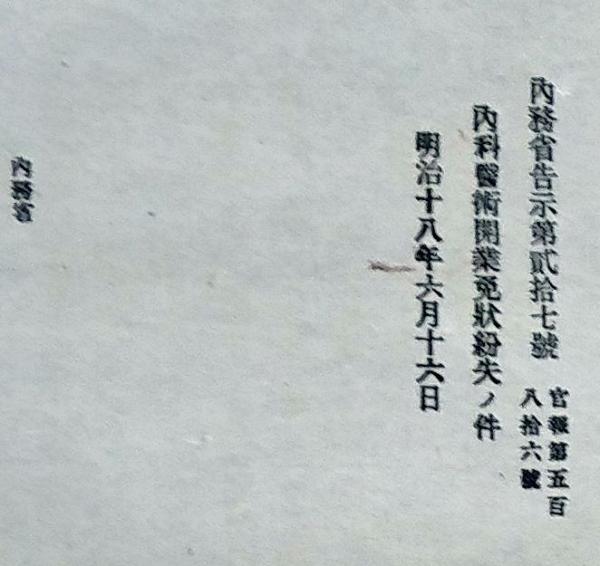 內務省告示第貳拾七號
官報第五百
八拾六號
內科醫術開業免狀紛失ノ件
明治十八年六月十六日
內務省